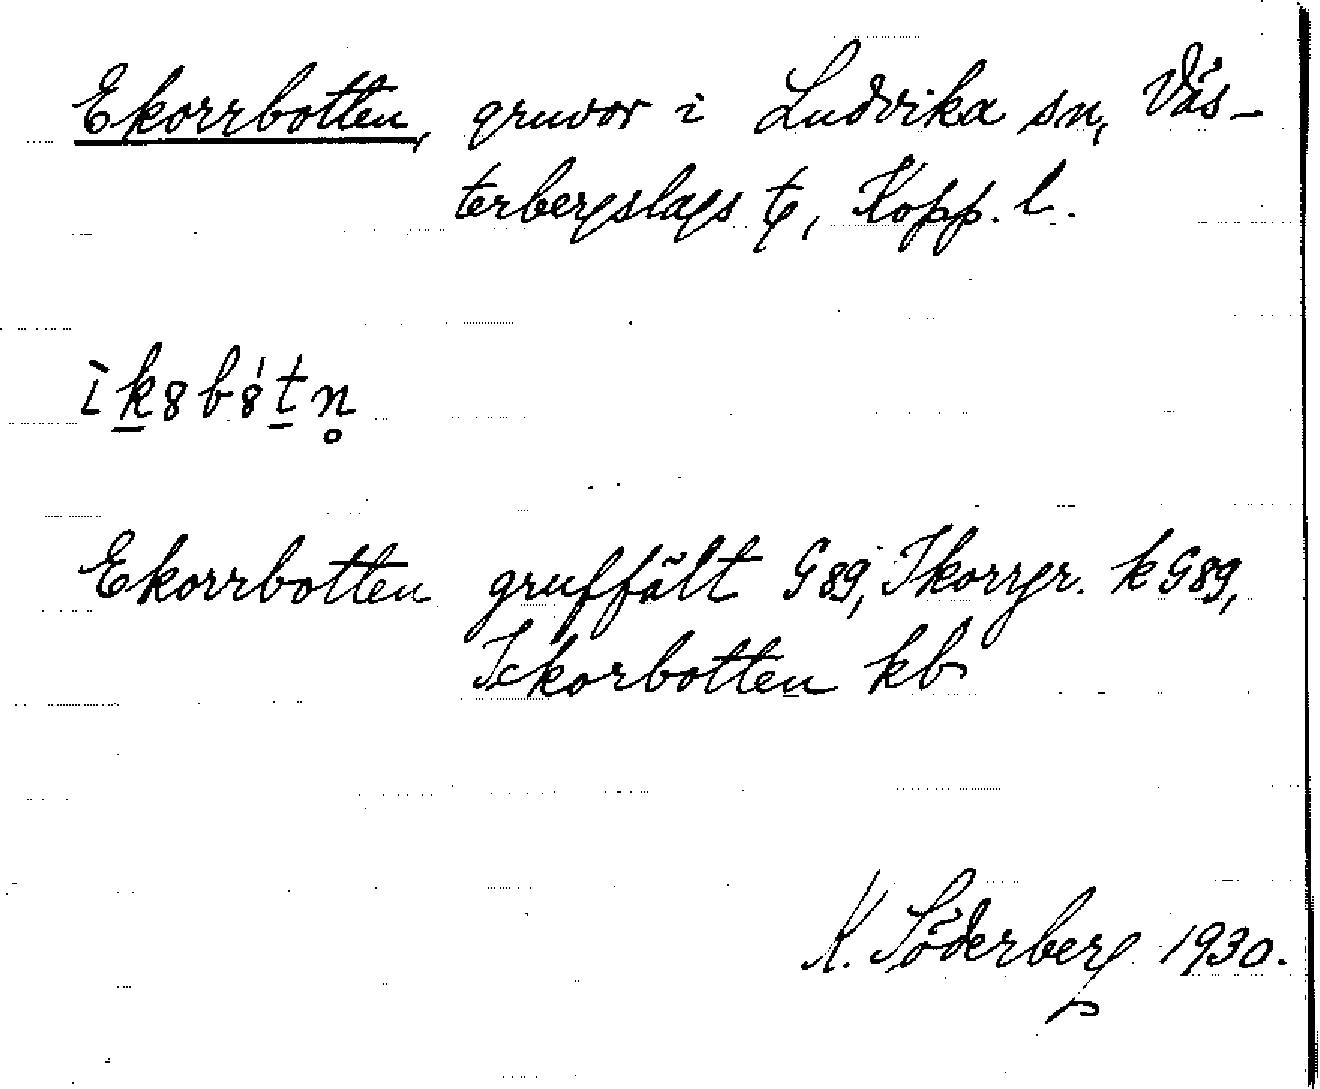 Ekorrbotten, gruvor i Ludvika sn, Väs-
terbergslags tg, Kopp. l.
ìk8b8́tn̥
Ekorrbotten gruffält G89, Ikorrgr. k G89,
Ickorbotten kb
K. Söderberg 1930.